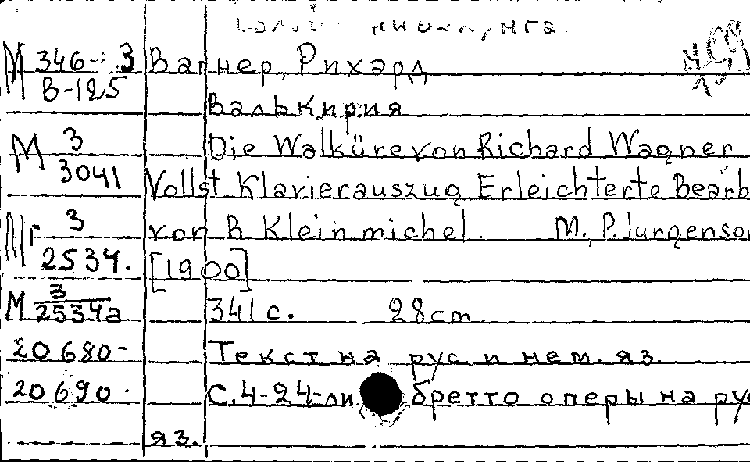 М 346-3 Вагнер, Рихард
В-125
Валькирия
М 3 Die Walküre von Richard Wagner
3041 Vollst Klavierauszug Erleichterte Bearb
3 von R Kleinmichel. M, P. Jurgenso
2534. [1900]
М 3 341 с. 28cm
2534а
20680- Текст на рус и нем. яз.
20690. С.4-24-ли бретто оперы на ру
яз.